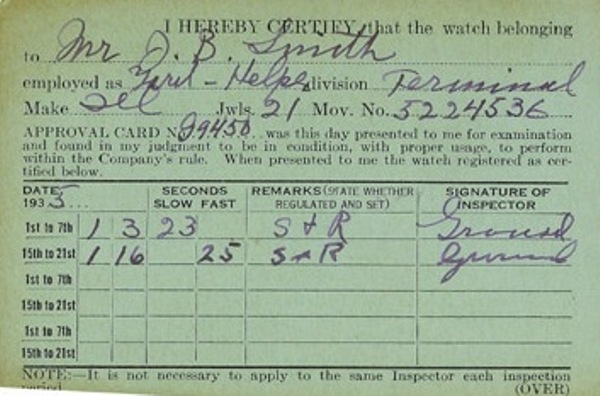 I HEREBY CERTIFY, that the watch belonging
to Mr J. B. Smith
employed as Yard - Helper division Terminal
Make Ill Jwls. 21 Mov. No. 5224536
APPROVAL CARD No. J9450 was this day presented to me for examination
and found in my judgment to be in condition, with proper usage, to perform
within the Company's rule. When presented to me the watch registered as cer-
tified below.
DATE 1935... SECONDS SLOW FAST REMARKS (STATE WHETHER REGULATED AND SET) SIGNATURE OF INSPECTOR
1st to 7th 1 3 23 S & R
15th to 21st 1 16 25 S & R
1st to 7th
15th to 21st
1st to 7th
15th to 21st
NOTE:—It is not necessary to apply to the same Inspector each inspection
period. (OVER)